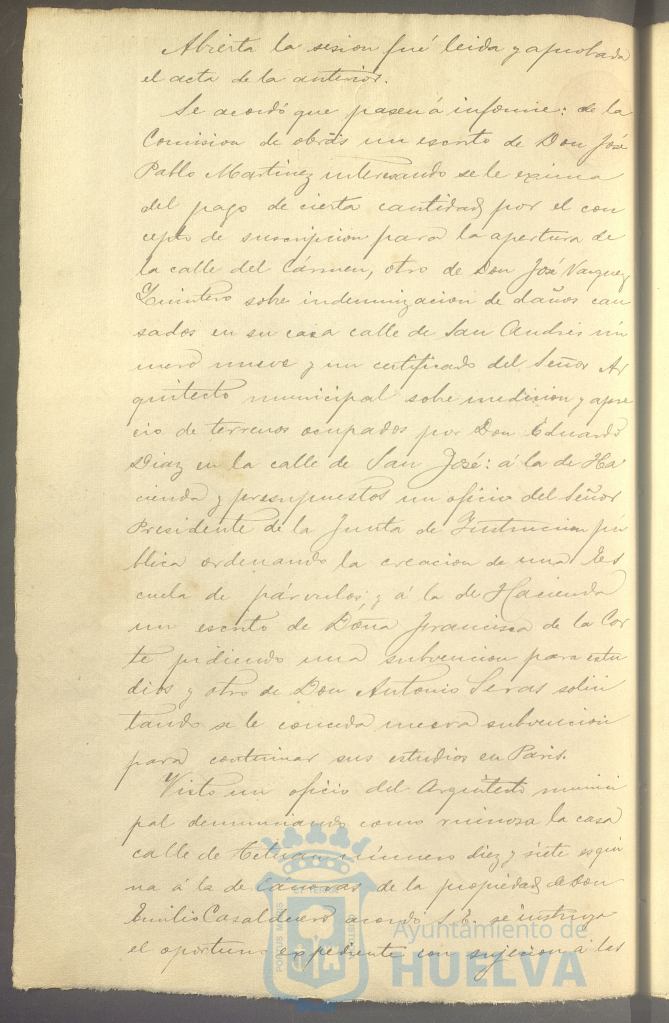 Abierta la sesion fué leida y aprobada
el acta de la anterior.
Se acordó que pasen á informe: de la
Comision de obras un escrito de Don José
Pablo Martinez interesando se le exima
del pago de cierta cantidad por el con
cepto de suscripcion para la apertura de
la calle del Cármen, otro de Don José Vazquez
Quintero sobre indemnizacion de daños cau
sados en su casa calle de San Andrés nú
mero nueve y un certificado del Señor Ar
quitecto municipal sobre medicion y apre
cio de terrenos ocupados por Don Eduardo
Diaz en la calle de San José: á la de Ha
cienda y presupuestos un oficio del Señor
Presidente de la Junta de Instruccion pú
blica ordenando la creacion de una Es
cuela de párvulos; y á la de Hacienda
un escrito de Doña Francisca de la Cor
te pidiendo una subvencion para estu
dios y otro de Don Antonio Seras solici
tando se le conceda nueva subvencion
para continuar sus estudios en Paris.
Visto un oficio del Arquitecto munici
pal denunciando como ruinosa la casa
calle de Tetuan número diez y siete esqui
na á la de Cánovas de la propiedad de Don
Emilio Casalduero acordó S. E. se instruya
el oportuno expediente con sujecion á las
Ayuntamiento de
HUELVA